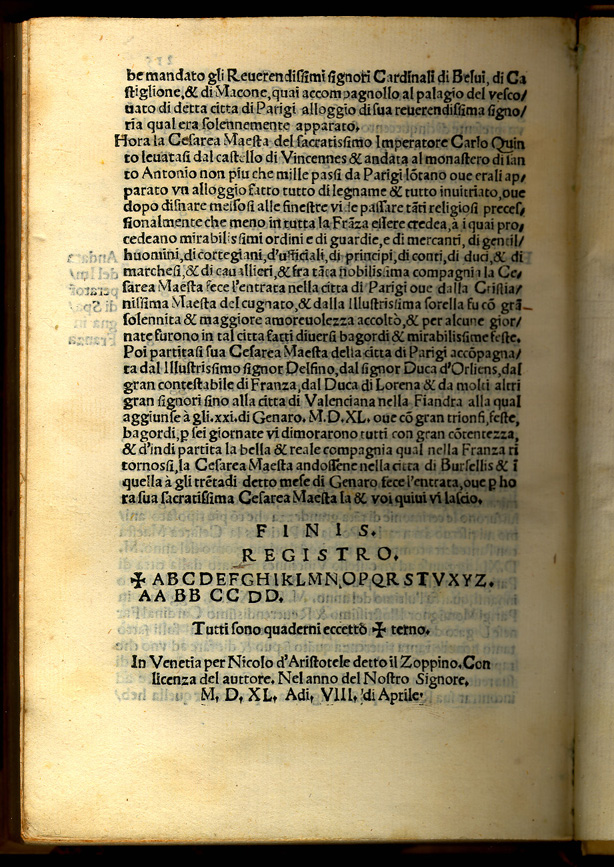 be mandato gli Reuerendissimi signori Cardinali di Belui, di Ca
stiglione, & di Macone, quai accompagnollo al palagio del vesco/
uato di detta citta di Parigi alloggio di sua reuerendissima signo/
ria qual era solennemente apparato.
Hora la Cesarea Maesta del sacratissimo Imperatore Carlo Quin
to leuatasi dal castello di Vincennes & andata al monastero di san
to Antonio non piu che mille passi da Parigi lõtano oue erali ap/
parato vn alloggio fatto tutto di legname & tutto inuitriato, oue
dopo disnare messosi alle finestre vide passare tãti religiosi preces/
sionalmente che meno in tutta la Frãza essere credea, a i quai pro/
cedeano mirabilissimi ordini e di guardie, e di mercanti, di gentil/
huomini, di cortegiani, d'ufficiali, di principi, di conti, di duci, & di
marchesi, & di cauallieri, & fra tãta nobilissima compagnia la Ce/
sarea Maesta fece l'entrata nella citta di Parigi oue dalla Cristia/
nissima Maesta del cugnato, & dalla Illustrissima sorella fu cõ grã
solennita & maggiore amoreuolezza accolto, & per alcune gior/
nate furono in tal citta fatti diuersi bagordi & mirabilissime feste.
Poi partitasi sua Cesarea Maesta della citta di Parigi accõpagna/
ta dal Illustrissimo signor Delfino, dal signor Duca d'Orliens, dal
gran contestabile di Franza, dal Duca di Lorena & da molti altri
gran signori sino alla citta di Valenciana nella Fiandra alla qual
aggiunse à gli .xxi. di Genaro. M.D.XL. oue cõ gran trionfi, feste,
bagordi, p sei giornate vi dimorarono tutti con gran cõtentezza,
& d'indi partita la bella & reale compagnia qual nella Franza ri
tornossi, la Cesarea Maesta andossene nella citta di Bursellis & ĩ
quella à gli trẽtadi detto mese di Genaro fece l'entrata, oue p ho
ra sua sacratissima Cesarea Maesta la & voi quiui vi lascio.
F I N I S.
R E G I S T R O.
✠ A B C D E F G H I K L M N O P Q R S T V X Y Z.
AA BB CC DD.
Tutti sono quaderni eccetto ✠ terno.
In Venetia per Nicolo d'Aristotele detto il Zoppino. Con
licenza del auttore. Nel anno del Nostro Signore.
M. D. XL. Adi. VIII. di Aprile.